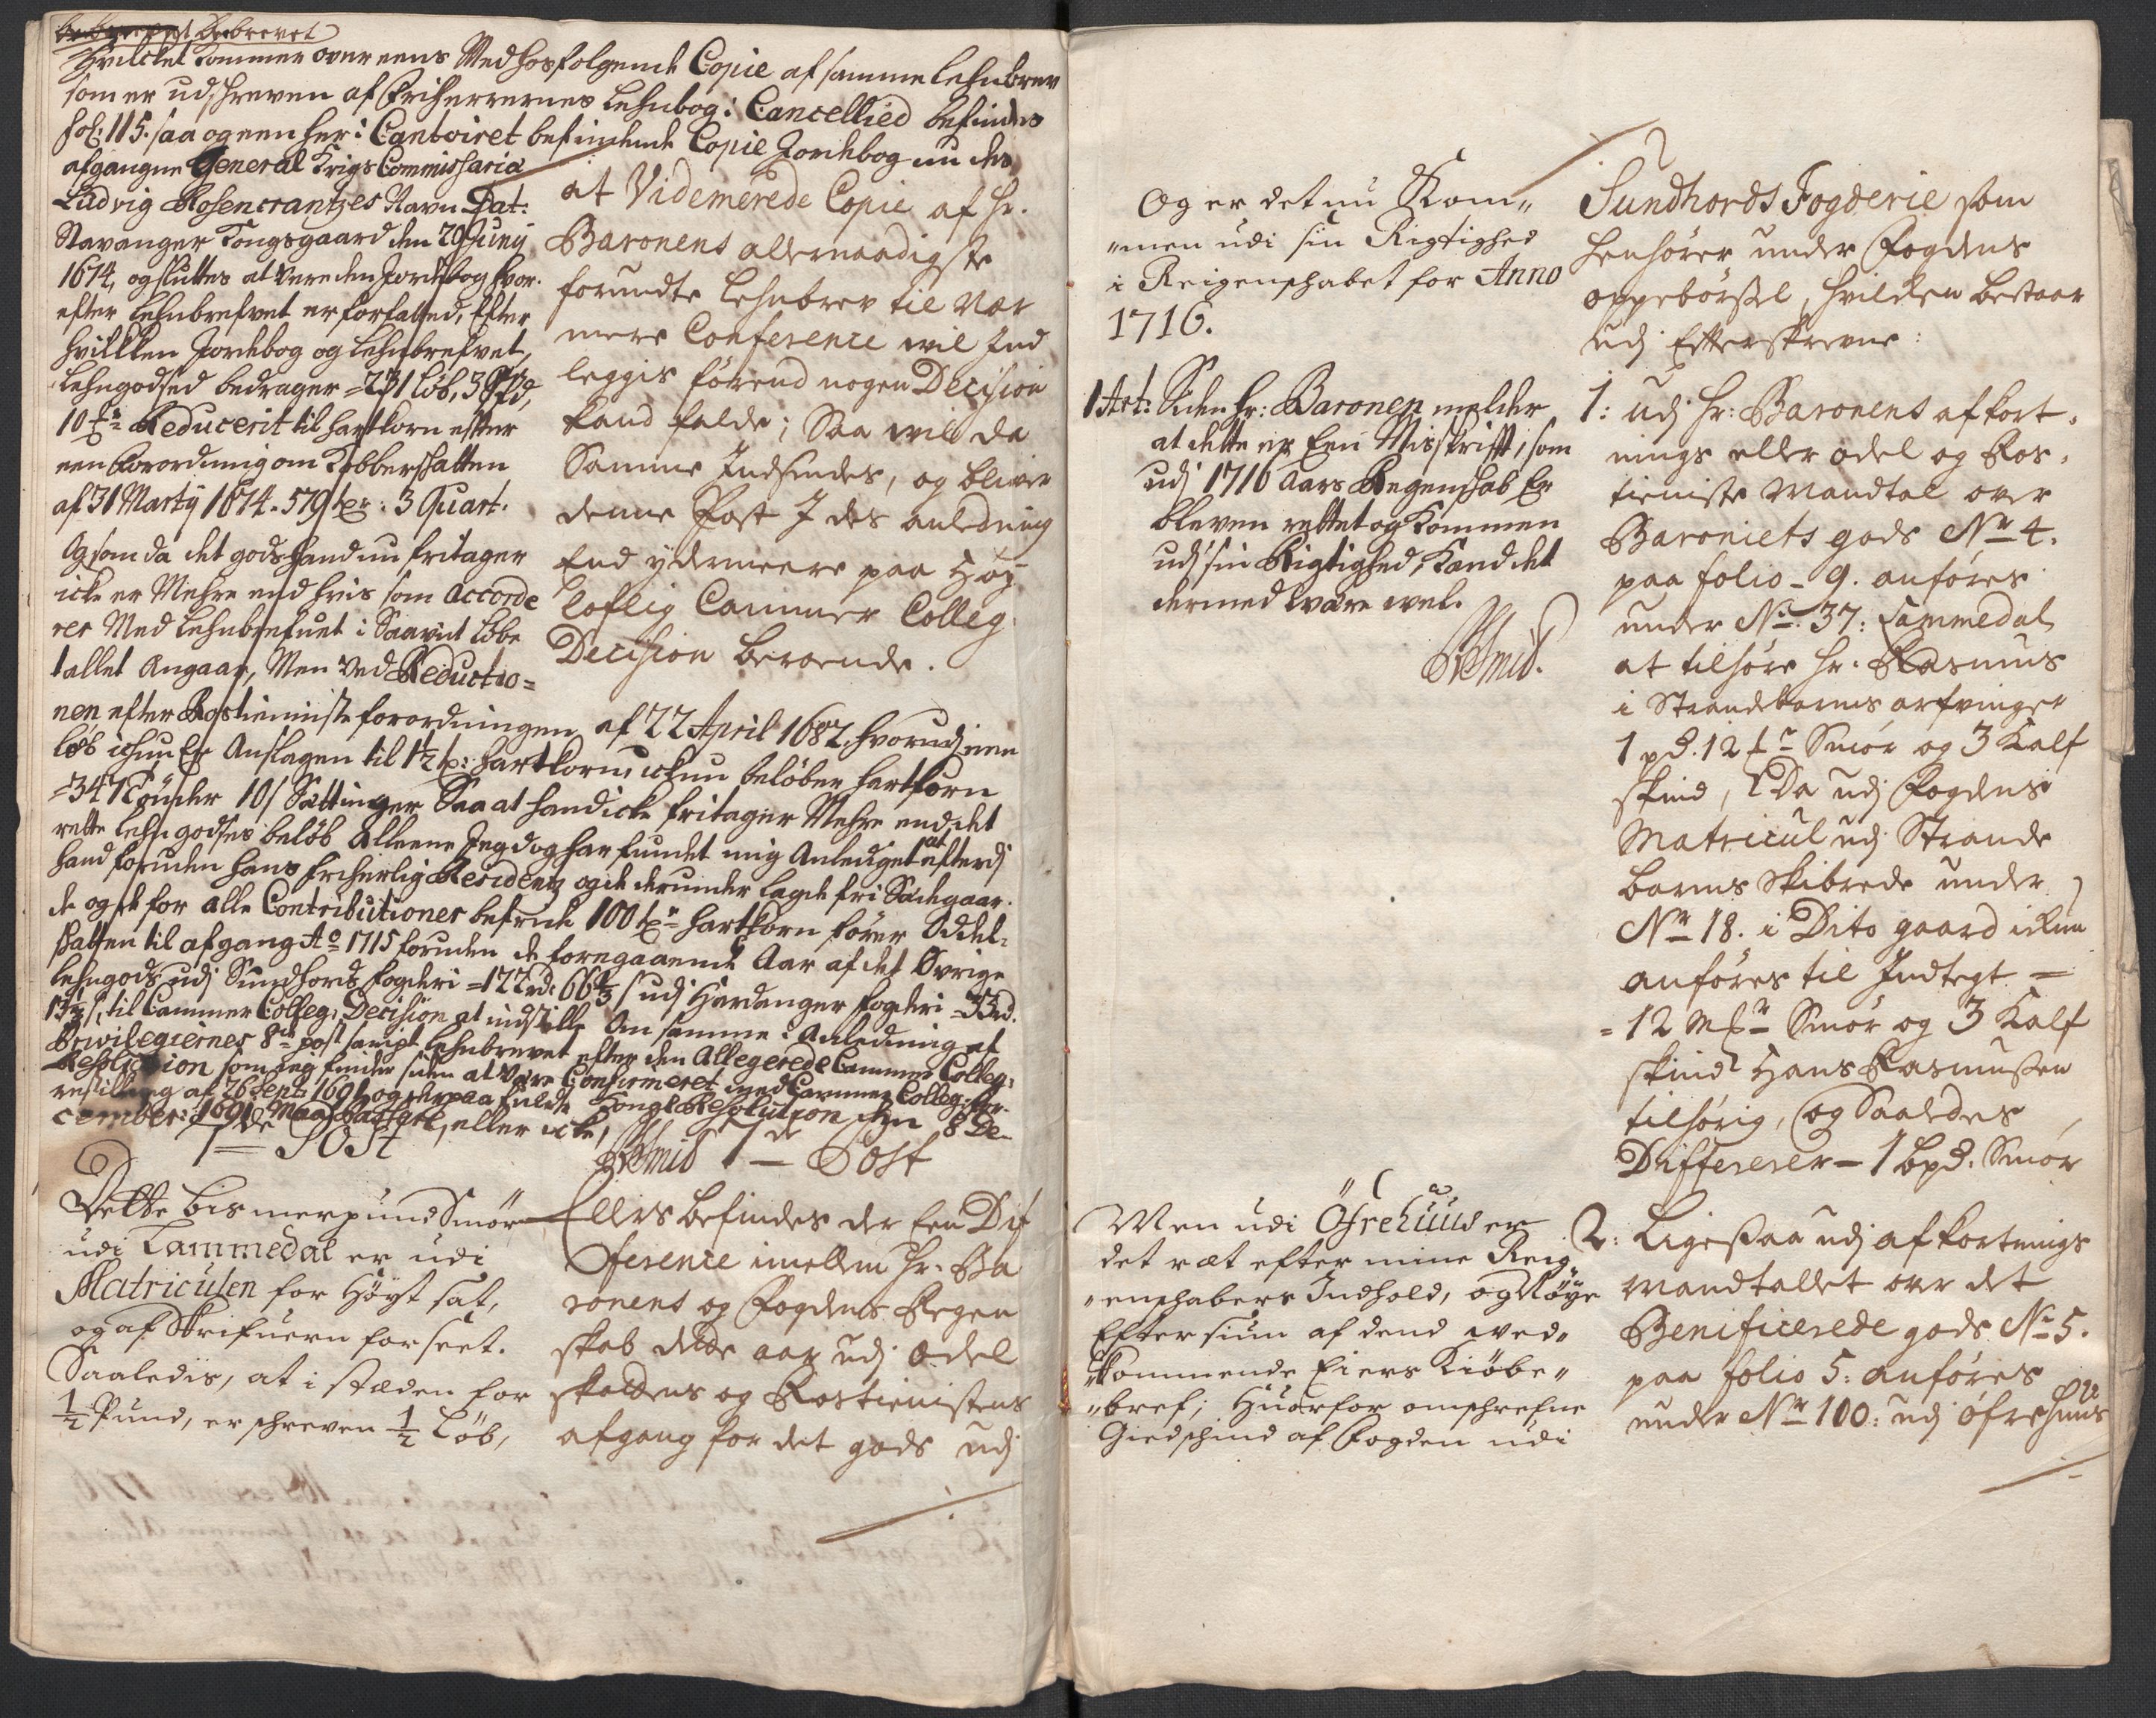 Lehnbrevet
Hvilcket kommer over eens Med hosfolgende Copie af samme lehnbrev
som er udschreven af Friherrernes Lehnbog i Cancellied befindes
fol: 115. saa og een her i Contoiret befindende Copie Jordebog nu des
afgangne General Krigs Commissaria
Ludvig Rosencrantzes Navn Dat:
Stavanger Kongsgaard den 29 Juny
1674, og sluttes at være den Jordebog hvor-
efter Lehnbrefvet er forfatted, Efter
hvilken Jordebog og Lehnbrefvet,
Lehngodsed bedrager = 231 löb,
10 Reducerit til hartkorn efter
een forordning om Kobberskatten
af 31 Martij 1674. 579 tr: 3 Quart.
Og som da det gods hand nu fritager
icke er Mehre end hvis som accorde
rer Med lehnbrefuet i Saavit löbe
tallet Angaar, Men ved Reductio=
nen efter Rostieniste forordningen af 22 April 1682, hvorudj een
löb ickun er Anslagen til 1½ t: hartkorn, ickun beløber hartkorn
=347 Tönder 10 Sættinger Saa at hand icke fritager Mehre end det
rette lehngodses beløb Alleene Jeg dog har fundet mig Anlediget at efterdj
hand foruden hans friherlig Residentz og de derunder lagde fri Sædegaar-
de og de for alle Contributioner befriede 100 t hartkorn förer Oddel-
skatten til afgang Ao 1715 foruden de foregaaende Aar af det Øvrige
lehngods udj Sundhords fogderi = 122 rd: 66⅔ s udj Hardanger fogderi = 33 rd.
13⅓ s, til Cammer Colleg: Decision at indstille Om samme i Anledning af
Privilegiernes 8de post sampt lehnbrevet efter den Allegerede Cammer Colleg:
Resolution som Jeg finder siden at være Confirmeret med Cammer Colleg: For-
restilling af 26 Sept: 1691 og derpaa fulde Kongl: Resolution den 8 De-
cember: 1691 Maa Passere, eller icke,
Smid
at Videmerede Copie af hr.
Baronens allernaadigste
forundte Lehnbrev til nær
mere Conference vil Ind
leggis förend nogen Decision
kand falde; Saa vil da
Samme Indsendes, og bliver
denne Post J des anledning
End ydermeere paa Høy
loflig Cammer Colleg
Decision beroende.
1de Post
Dette bismerpund Smör
udi Lammedal er udi
Matriculen for Höyt sat,
og af Skrifueren forseet.
Saaledis, at i stæden for
½ Pund, er schreven ½ Löb,
1de Post
Ellers befindes der Een Dif
ference imellem Hr. Ba
ronens og Fogdens Regen
skab dette aar udj odel
skattens og Rostienistens
afgang for det gods udj
Og er det nu Kom„
„men udi sin Rigtighed
i Reigenschabet for Anno
1716.
1 Art: Siden Hr: Baronen melder
at dette er Een Misskrifft, som
udj 1716 Aars Regenschab Er
bleven rettet og kommen
udj sin Rigtighed, kand det
dermed være vel.
Smid.
Men udi Öfrehuus er
det ræt efter mine Reig„
„enschabers Indhold, og Nöye
Eftersiun af dend ved„
„kommende Eiers Kiöbe„
„bref; Huorfor omschrefne
Giedschind af Fogden udi
Sundhords Fogderie som
henhører under Fogdens
oppebørsel, hvilken bestaar
udj Efterskrevne:
1: udj Hr: Baronens afkort-
nings eller odel og Ros-
tieniste Mandtal over
Baroniets gods No 4.
paa folio 9. anføres
under No. 37: Lammedal
at tilhøre Hr. Rasmus
i Strandebarms arfvinger
1 pd. 12 mr Smør og 3 Kalf
skind, Da udj Fogdens
Matricul udj Strande
barms Skibrede under
Nr 18. i Dito gaard ickun
anføres til Indtegt —
= 12 Mr Smör og 3 Kalf
skind Hans Rasmussen
tilhørig, og Saaledes
Differerer — 1 bpd. Smør
2: Ligesaa udj afkortnings
Mandtallet over det
Benificerede gods No 5.
paa folio 5: anføres
under Nr 100: udj øfrehuus